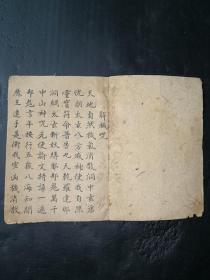 解穢咒
天地自然穢氣消散洞中玄虛
恍朗太玄八方威神使我自然
靈寶符命普告九天乾羅達那
洞綱太玄斬妖縛邪都鬼萬千
中山神咒元使論文持誦一遍
却鬼言年按行五嶽八海知聞
魔王速手衛我山穢消散